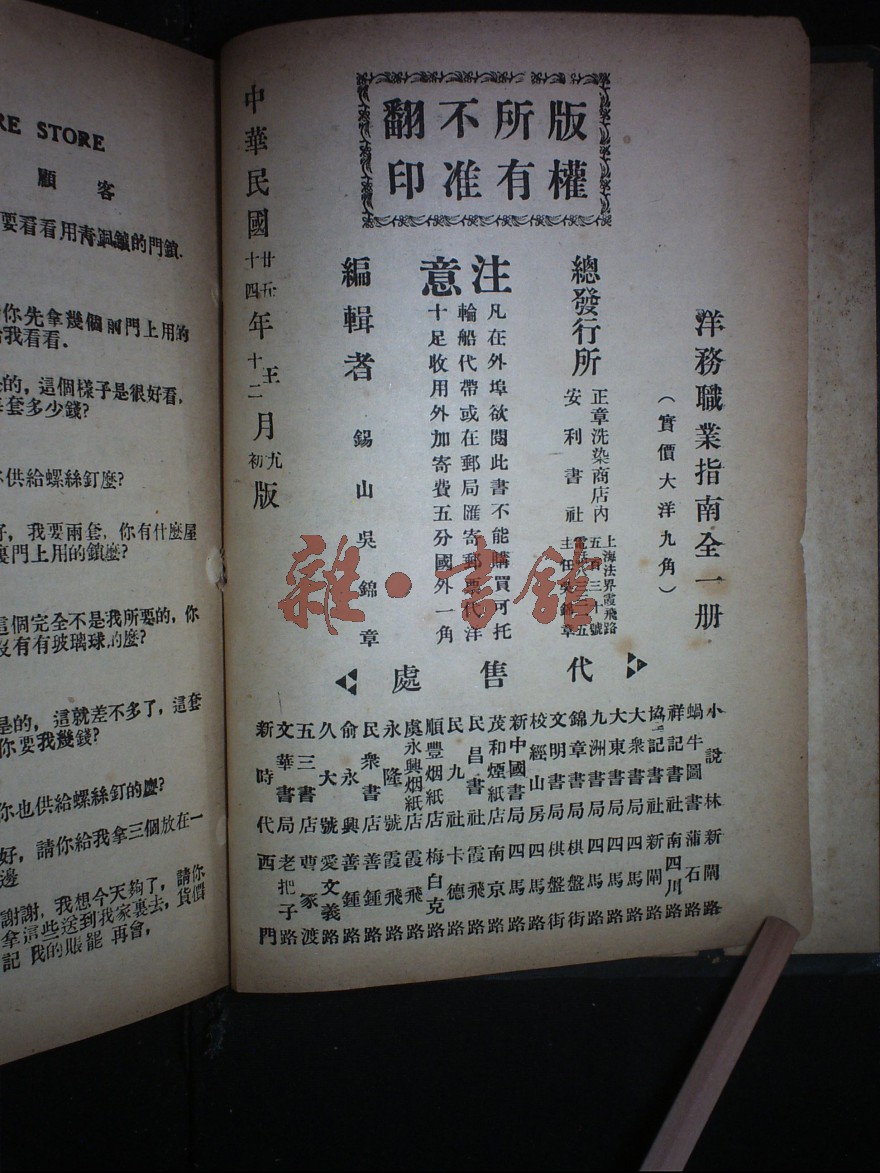 RE STORE
顧 客
要看看用青銅鍼的門鎖.
你先拿幾個前門上用的
我看看.
的, 這個樣子是很好看,
套多少錢?
供給螺絲釘麼?
好, 我要兩套. 你有什麼屋
裏門上用的鎖麼?
這個完全不是我所要的, 你
沒有有玻璃球的麼?
是的, 這就差不多了, 這套
你要我幾錢?
你也供給螺絲釘的麼?
好, 請你給我拿三個放在一
邊
謝謝, 我想今天夠了, 請你
拿這些送到我家裏去, 貨價
記 我的賬罷 再會,
版權
所有
不准
翻印
洋務職業指南全一册
(實價大洋九角)
總發行所
正章洗染商店內
安利書社
上海法界霞飛路
五百三十號
主任吳錦章
注意
凡在外埠欲閱此書不能購買可托
輪船代帶或在郵局匯寄郵票代洋
十足收用外加寄費五分國外一角
編輯者 錫山吳錦章
中華民國廿五年王月九版
十四 十二 初
代售處
小說林 新閘路
蝸牛圖書 蒲石路
祥記書社 南四川路
協記書社 新閘路
大衆書局 四馬路
大東書局 四馬路
九洲書局 四馬路
錦章書局 棋盤街
文明書局 棋盤街
校經山房 四馬路
新中國書局 四馬路
茂和煙紙店 南京路
民昌書社 霞飛路
民九社 卡德路
順豐烟紙店 梅白克路
虞永興烟紙店 霞飛路
永隆號 霞飛路
民衆書店 善鍾路
俞永興 善鍾路
久大號 愛文義路
五三書店 曹家渡
文華書局 老把子路
新時代 西門
雜·書館